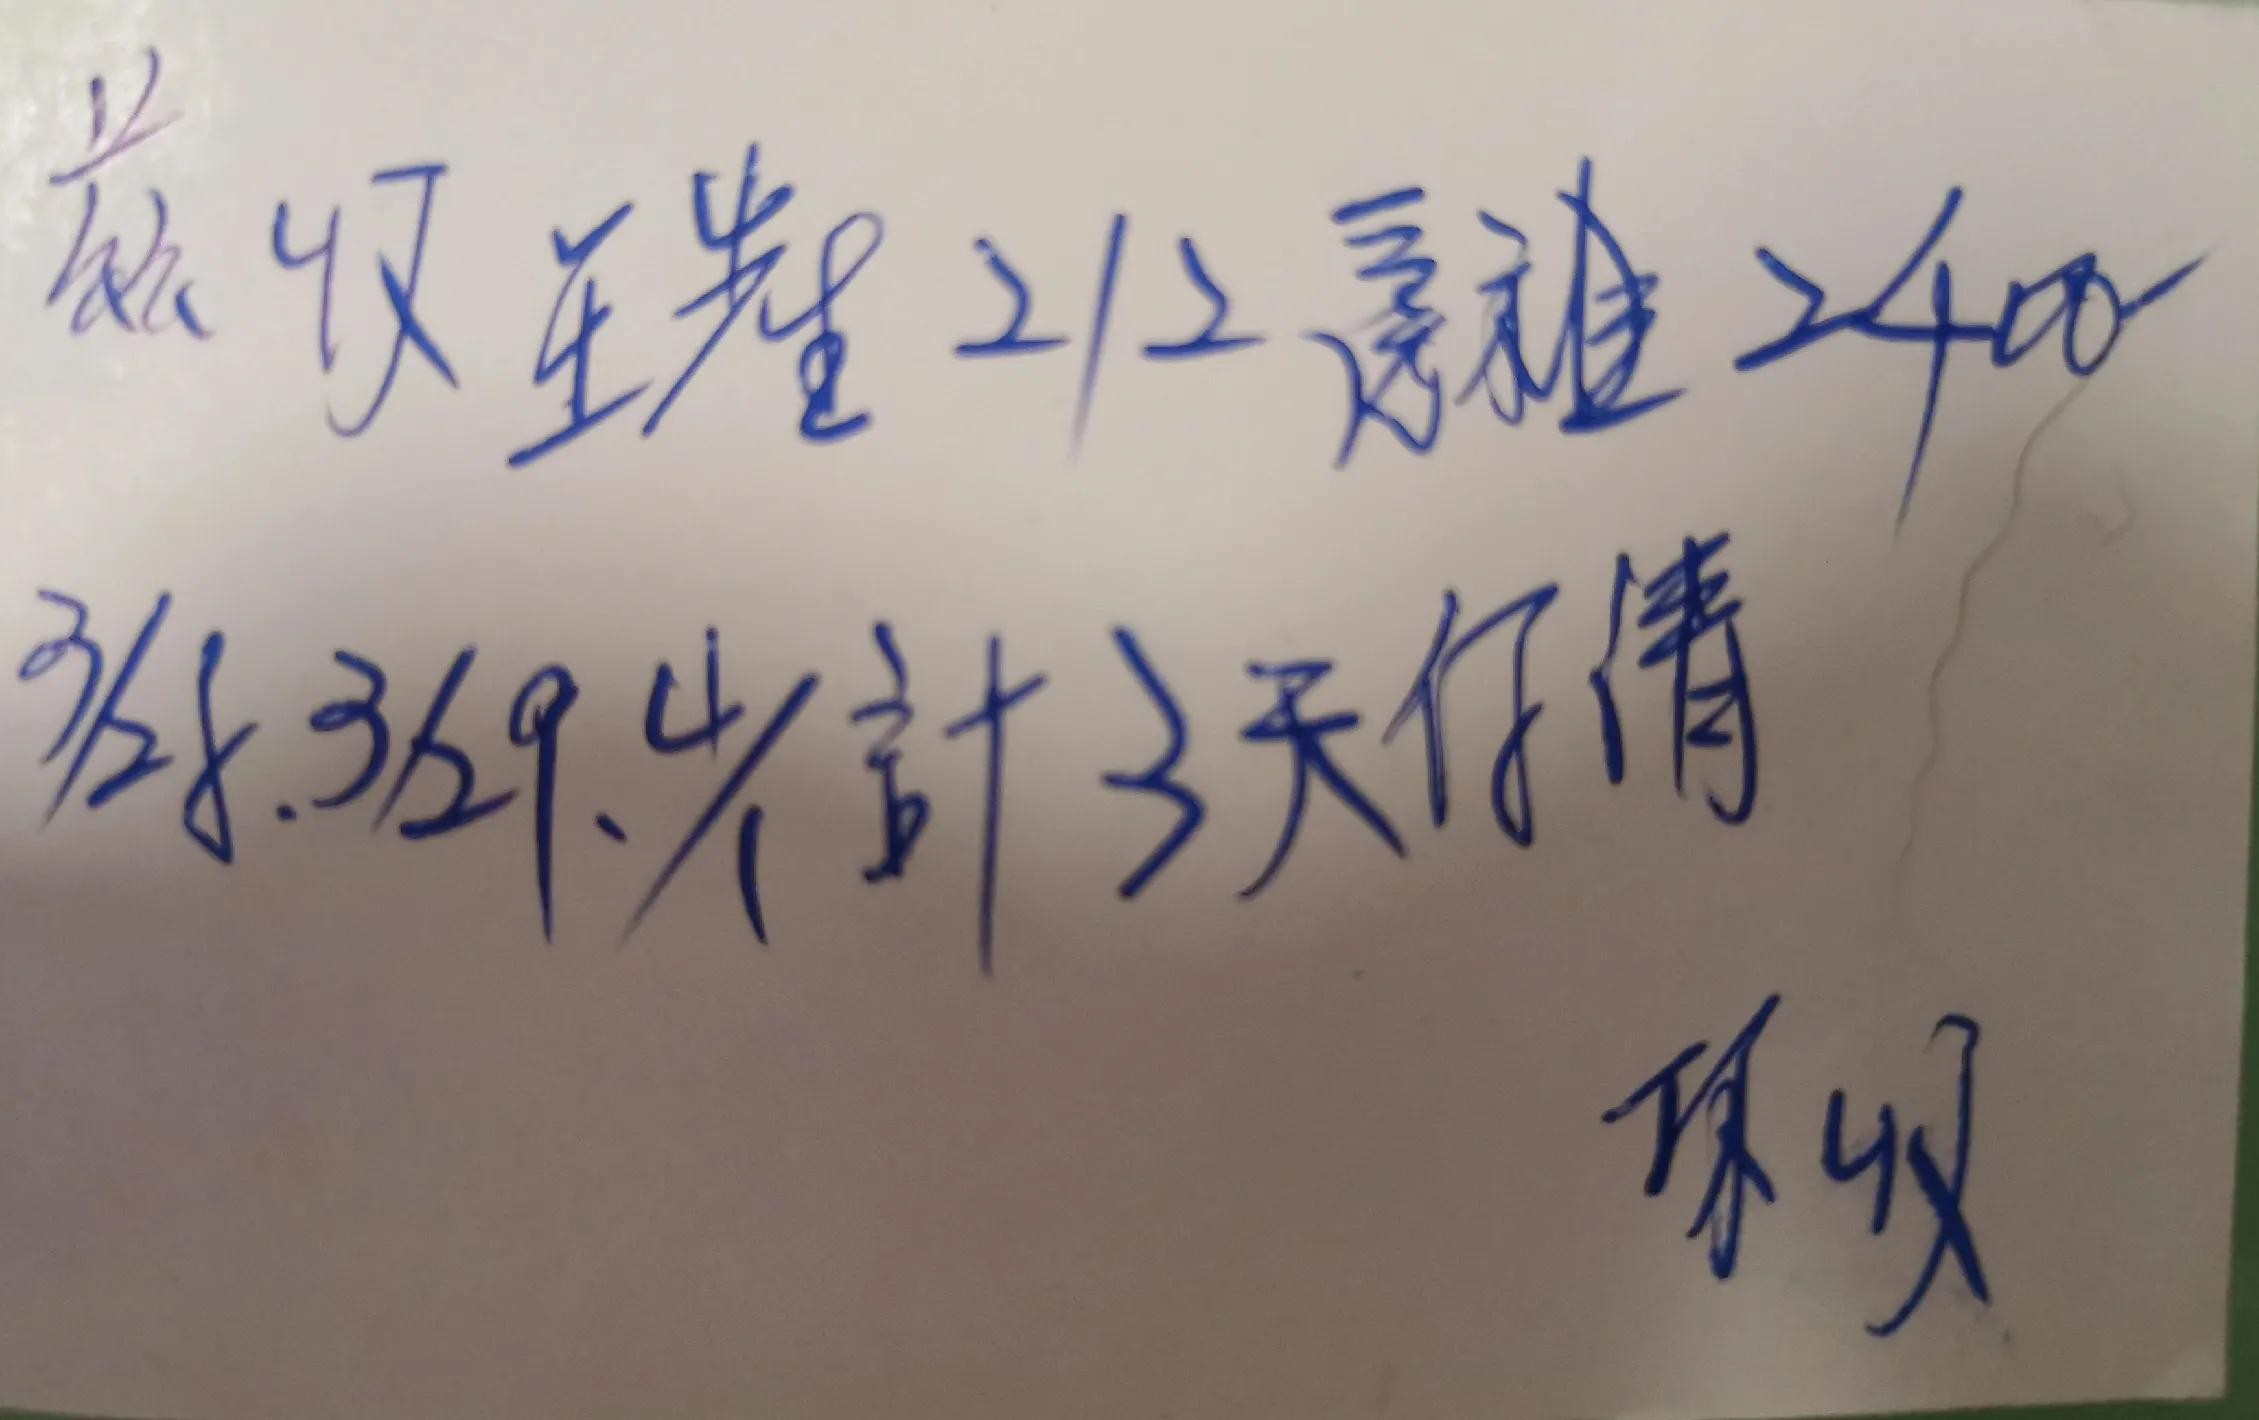 茲收王先生212房租2400
3/28.3/29.4/1計3天付清
陳收